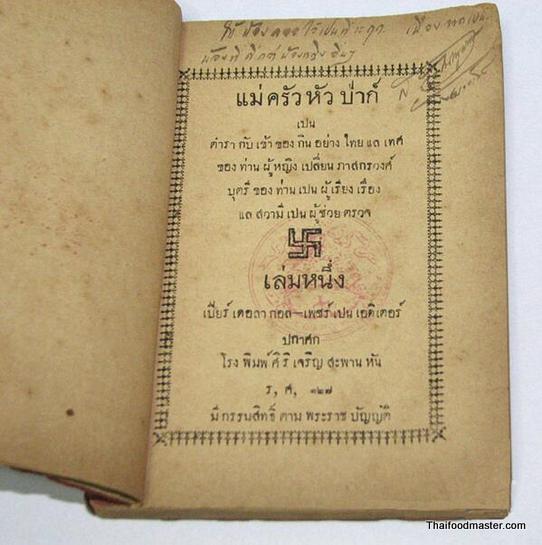 แม่ครัวหัวป่าก์
เปน
ตำรา กับ เข้า ของ กิน อย่าง ไทย แล เทศ
ของ ท่าน ผู้ หญิง เปลี่ยน ภาสกรวงศ์
บุตรี ของ ท่าน เปน ผู้ เรียง เรื่อง
แล สวามี เปน ผู้ ช่วย ตรวจ
เล่มหนึ่ง
เปียร์ เดอลา กอล—เพชร์ เปน เอดิเตอร์
ปกาศก
โรง พิมพ์ ศิริ เจริญ สะพาน หัน
ร, ศ, ๑๒๗
มี กรรมสิทธิ์ ตาม พระราช บัญญัติ
Thaifoodmaster.com